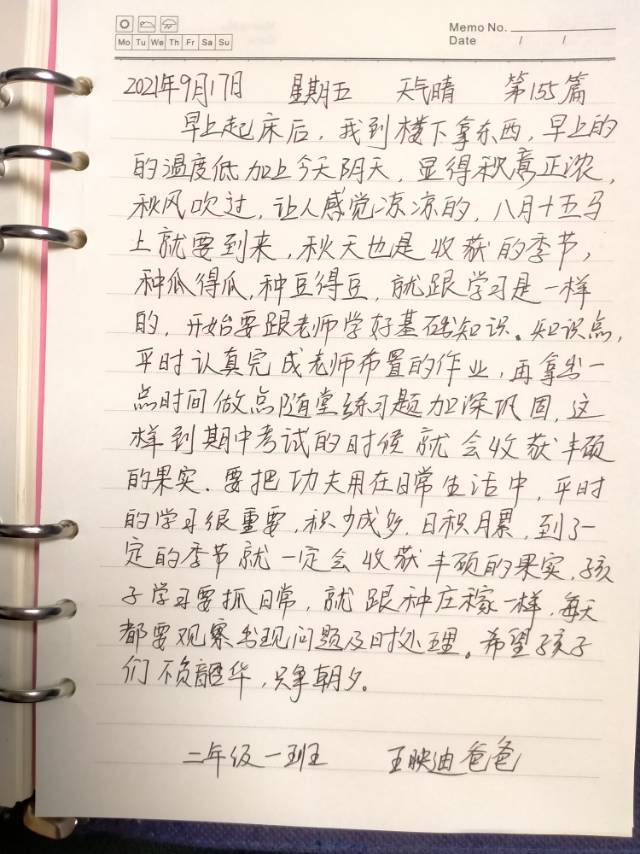 Memo No.
Mo Tu We Th Fr Sa Su
Date / /
2021年9月17日 星期五 天气晴 第155篇
早上起床后，我到楼下拿东西，早上的
的温度低加上今天阴天，显得秋意正浓，
秋风吹过，让人感觉凉凉的，八月十五马
上就要到来，秋天也是收获的季节，
种瓜得瓜，种豆得豆，就跟学习是一样
的，开始要跟老师学好基础知识。知识点，
平时认真完成老师布置的作业，再拿出一
点时间做点随堂练习题加深巩固，这
样到期中考试的时候就会收获丰硕
的果实。要把功夫用在日常生活中，平时
的学习很重要，积少成多，日积月累，到了一
定的季节就一定会收获丰硕的果实，孩
子学习要抓日常，就跟种庄稼一样，每天
都要观察出现问题及时处理。希望孩子
们不负韶华，只争朝夕。
二年级一班 王映迪爸爸